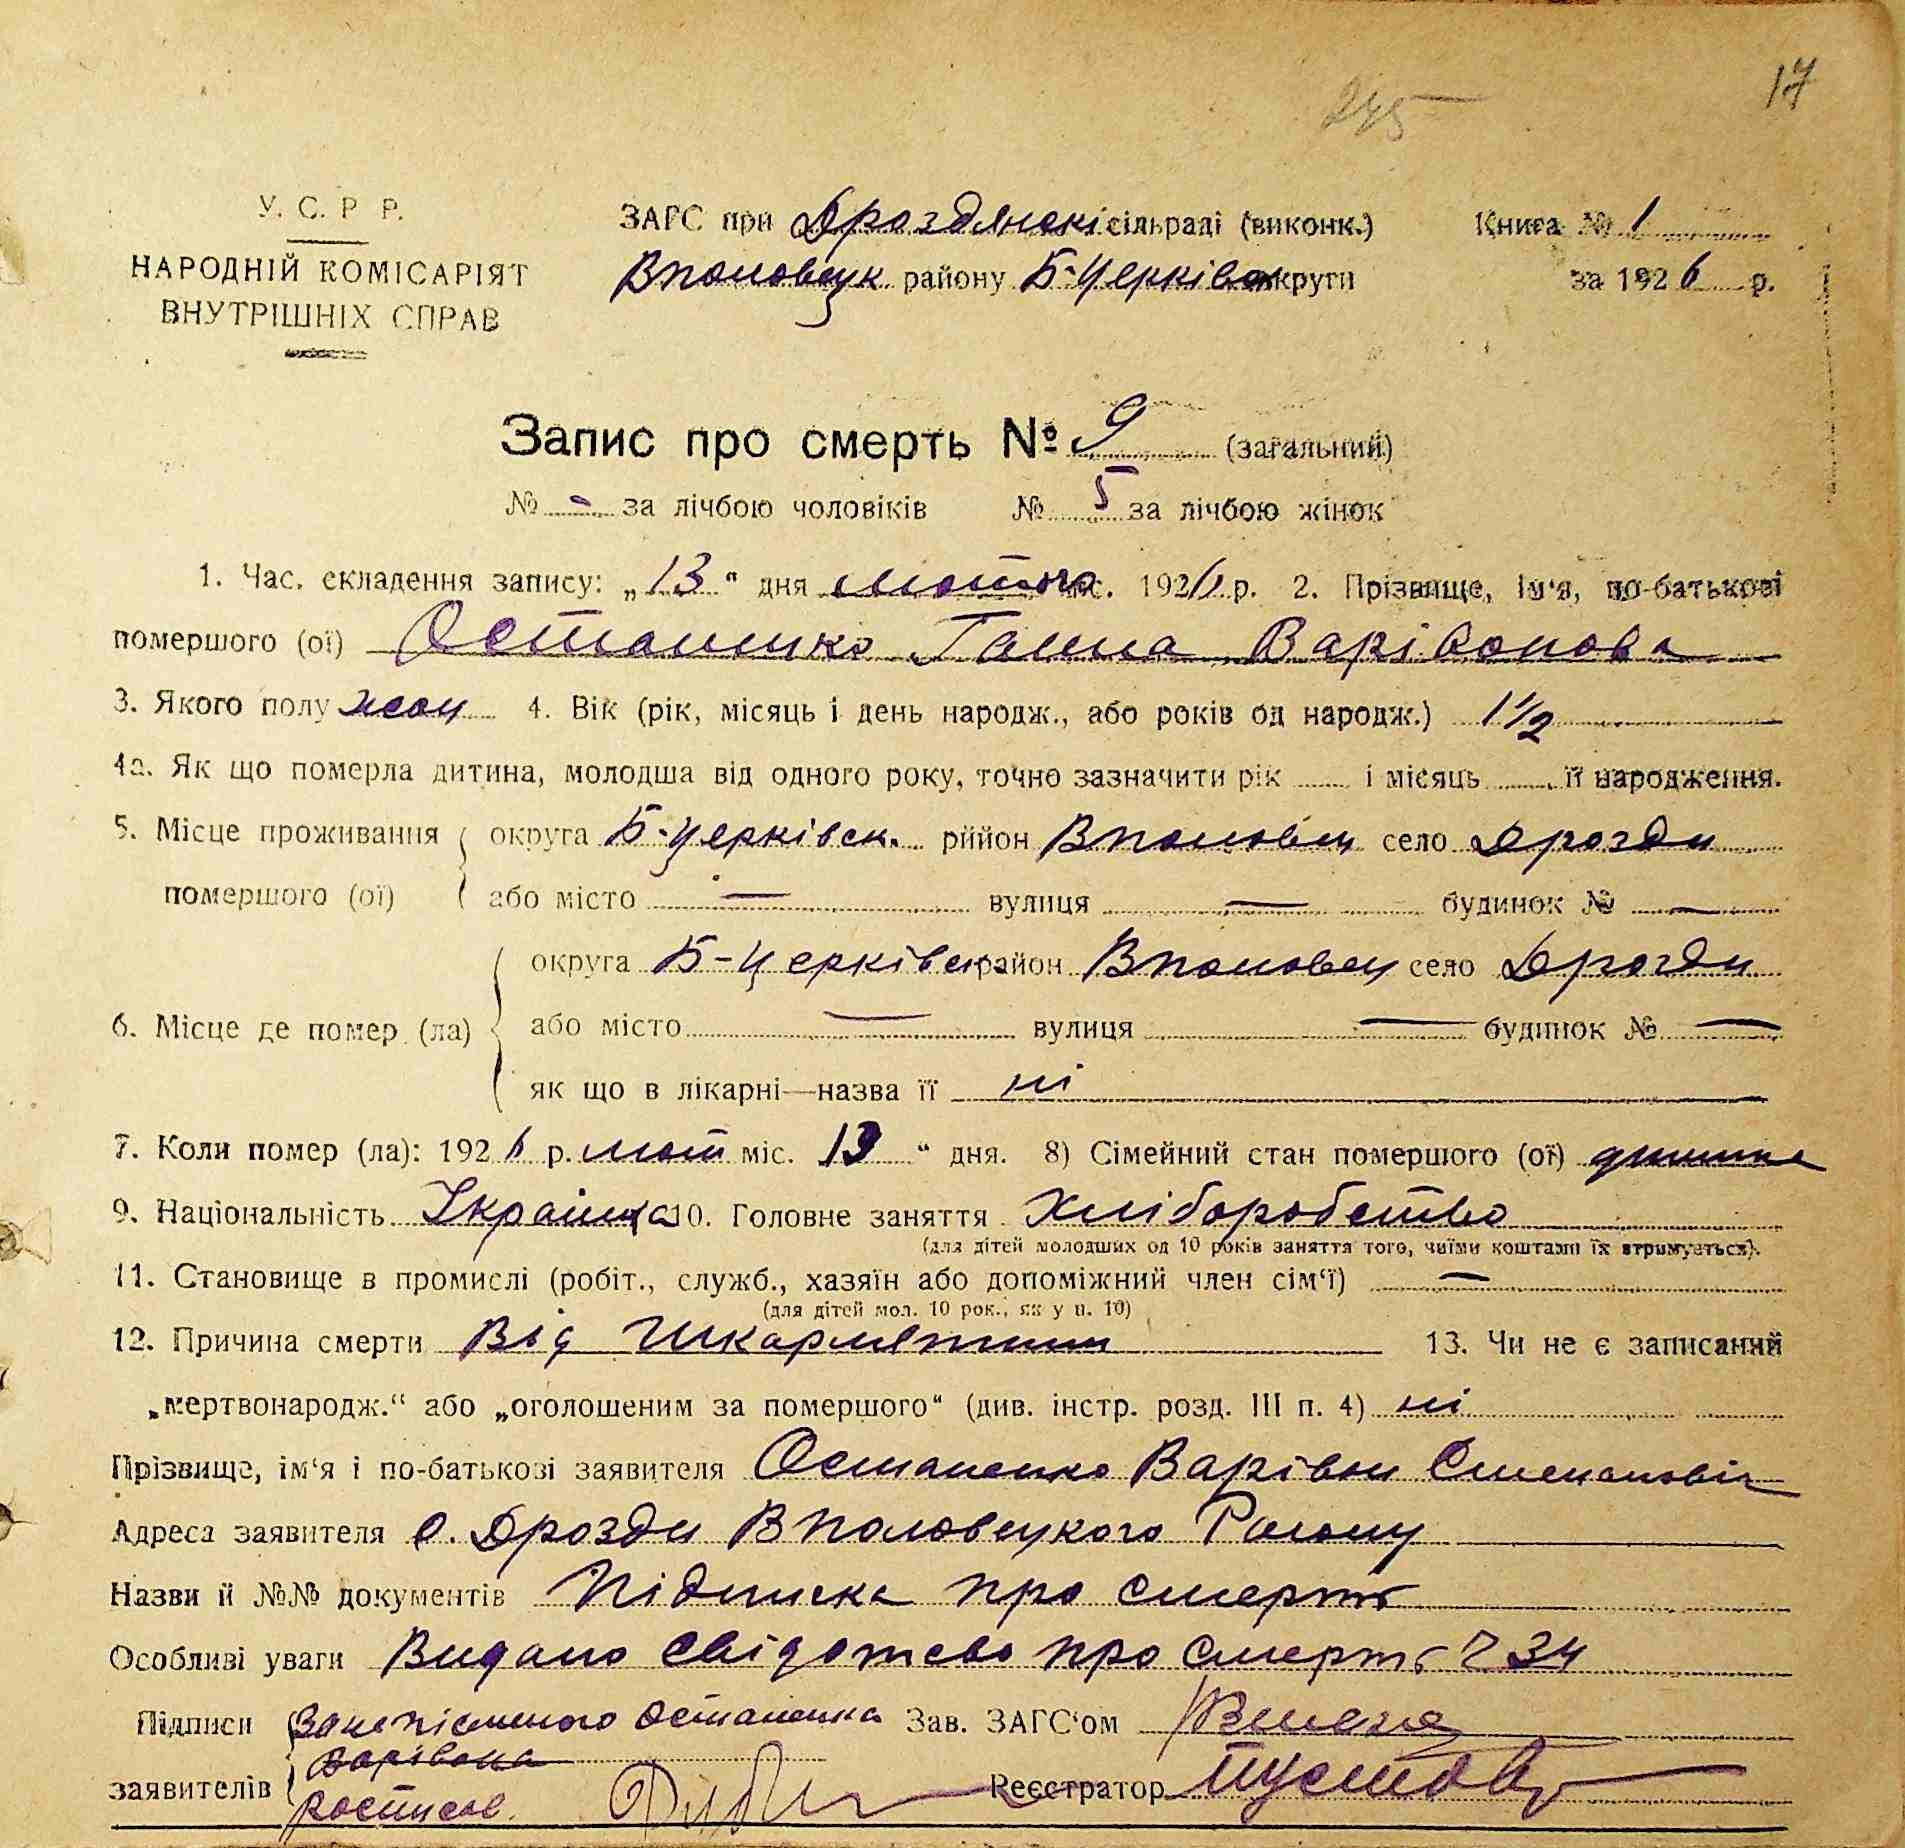 17
245
У. С. Р Р.
НАРОДНІЙ КОМІСАРІЯТ
ВНУТРІШНІХ СПРАВ
ЗАГС при Дроздянскі сільраді (виконк.)
Вполовецк району Б-Церківск округи
Книга № 1
за 1926 р.
Запис про смерть № 9 (загальний)
№ - за лічбою чоловіків № 5 за лічбою жінок
1. Час. складення запису: „13“ дня лютого міс. 1926 р. 2. Прізвище, ім‘я, по-батькові
помершого (ої) Остапенко Ганна Варівонова
3. Якого полу жон 4. Вік (рік, місяць і день народж., або років од народж.) 1 1/2
4а. Як що померла дитина, молодша від одного року, точно зазначити рік і місяць її народження.
5. Місце проживання округа Б-Церківск. рййон Вполовец село Дрозди
помершого (ої) або місто — вулиця — будинок № —
округа Б-Церківск район Вполовец село Дрозди
6. Місце де помер (ла) або місто — вулиця — будинок № —
як що в лікарні—назва її ні
7. Коли помер (ла): 1926 р. лют міс. 13 “ дня. 8) Сімейний стан помершого (ої) дитина
9. Національність Українка 10. Головне заняття Хліборобство
(для дітей молодших од 10 років заняття того, чиїми коштами їх втримується).
11. Становище в промислі (робіт., служб., хазяїн або допоміжний член сім‘ї) —
(для дітей мол. 10 рок., як у п. 10)
12. Причина смерти Від шкарлятини 13. Чи не є записаний
„мертвонародж.“ або „оголошеним за помершого“ (див. інстр. розд. III п. 4) ні
Прізвище, ім‘я і по-батькові заявителя Остапенко Варівон Степановіч
Адреса заявителя с. Дрозди Вполовецкого Району
Назви й №№ документів Підписка про смерть
Особливі уваги Видано свідотсво про смерть 34
Підписи За неписьменого Остапенка Зав. ЗАГС‘ом
Варівона
заявителів росписов. Реєстратор